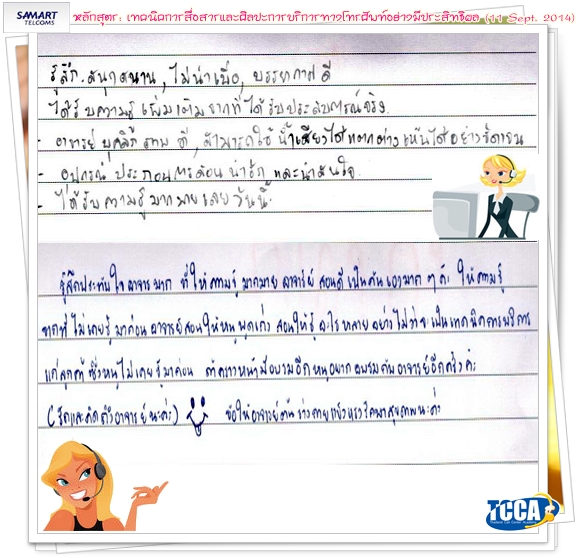 SAMART
TELCOMS
หลักสูตร: เทคนิคการสื่อสารและศิลปะการบริการทางโทรศัพท์อย่างมีประสิทธิผล (11 Sept. 2014)
รู้สึก. สนุกสนาน, ไม่น่าเบื่อ, บรรยากาศดี
ได้รับความรู้เพิ่มเติมจากที่ได้รับประสบการณ์จริง.
- อาจารย์ บุคลิกภาพ ดี, สามารถใช้น้ำเสียงได้แตกต่าง เห็นได้อย่างชัดเจน
- อุปกรณ์ ประกอบการสอน น่ารัก และน่าสนใจ.
- ได้รับความรู้มากมายเลยวันนี้.
รู้สึกประทับใจอาจารมาก ที่ให้ความรู้มากมาย อาจารย์ สอนดีเป็นกันเองมาก ๆ ค่ะ ให้ความรู้
จากที่ไม่เคยรู้มาก่อน อาจารย์สอนให้หนูพูดเก่ง สอนให้รู้อะไรหลายอย่าง ไม่ว่าจะเป็นเทคนิคการบริการ
แก่ลูกค้า ซึ่งหนูไม่เคยรู้มาก่อน ถ้าคราวหน้ามีอบรมอีกหนูอยากอบรมกับอาจารย์อีกครั้งค่ะ
(รักและคิดถึงอาจารย์นะค่ะ) ขอให้อาจารย์ร่างกายแข็งแรงรักษาสุขภาพนะค่ะ
TCCA